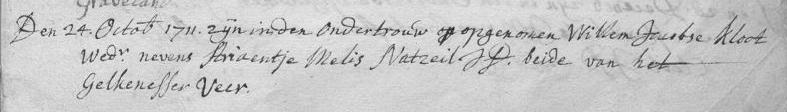 Den 24. Octobr 1711. zijn in den ondertrouw op opgenomen Willem Jacobse Kloot
Wedr. nevens Ariaentje Melis Natzeil JD. beide van het
Gelkenesser Veer.